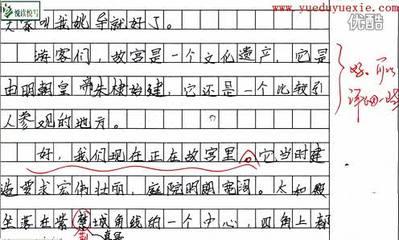 悦读悦写
www.yueduyuexie.com
优酷
叫我姚导就好了。
游客们，故宫是一个文化遗产，它是
由明朝皇帝朱棣始建，它还是一个比较引
人参观的地方。
好，我们现在正在故宫里。它当时建
造要求宏伟壮丽，庭院明朗宽阔。太和殿
坐落在紫城角线的一个中心，四角上都
好，可以
详细一些